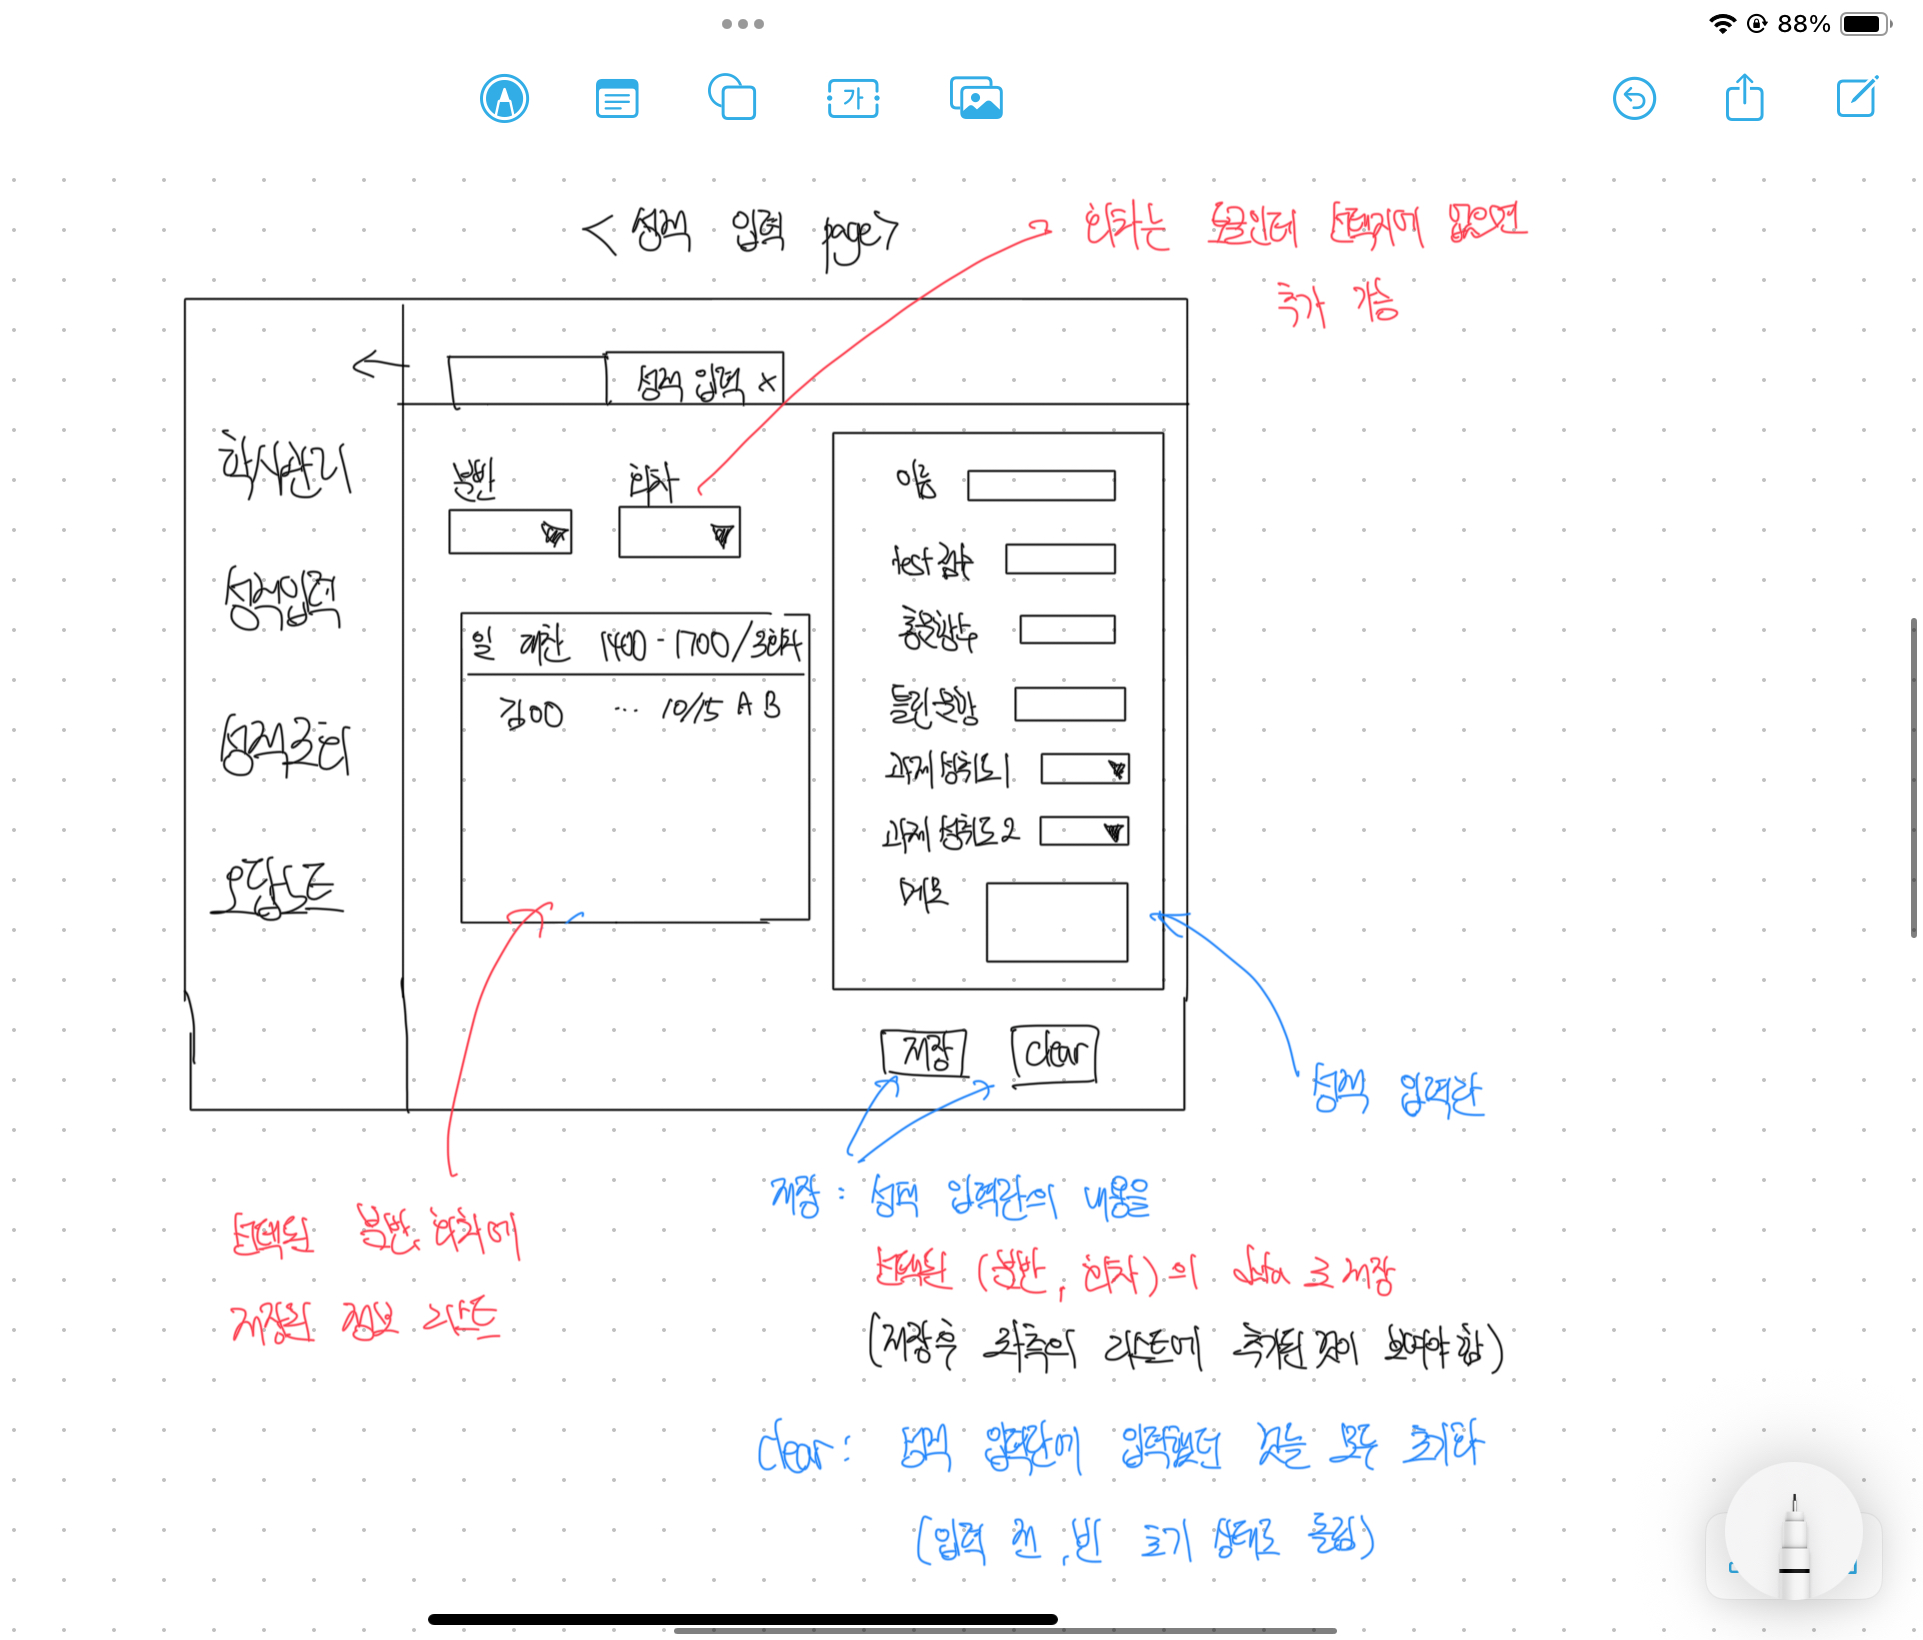 88%
가
< 성적 입력 page>
회차는 토글인데 선택지에 없으면
추가 가능
성적 입력 x
학사관리
성적입력
성적조회
오답노트
분반
회차
일 대찬 1400-1700/3회차
김00 ... 10/15 A B
이름
test 점수
총문항수
틀린문항
과제 성취도1
과제 성취도2
메모
저장
clear
성적 입력란
선택된 분반, 회차에
저장된 정보 리스트
저장 : 성적 입력란의 내용을
선택된 (분반, 회차)의 data로 저장
(저장 후 좌측의 리스트에 추가된 것이 보여야 함)
clear : 성적 입력란에 입력했던 것들 모두 초기화
(입력 전, 빈 초기 상태로 돌림)